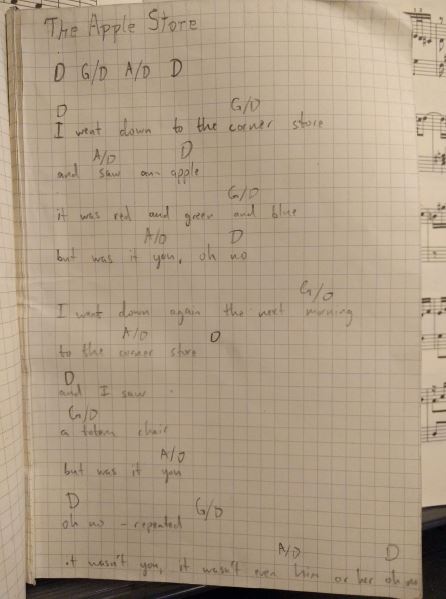 The Apple Store
D G/D A/D D
D G/D
I went down to the corner store
A/D D
and saw an apple
G/D
it was red and green and blue
A/D D
but was it you, oh no
G/D
I went down again the next morning
A/D D
to the corner store
D
and I saw
G/D
a totem chair
A/D
but was it you
D G/D
oh no - repeated
A/D D
it wasn't you, it wasn't even him or her oh no